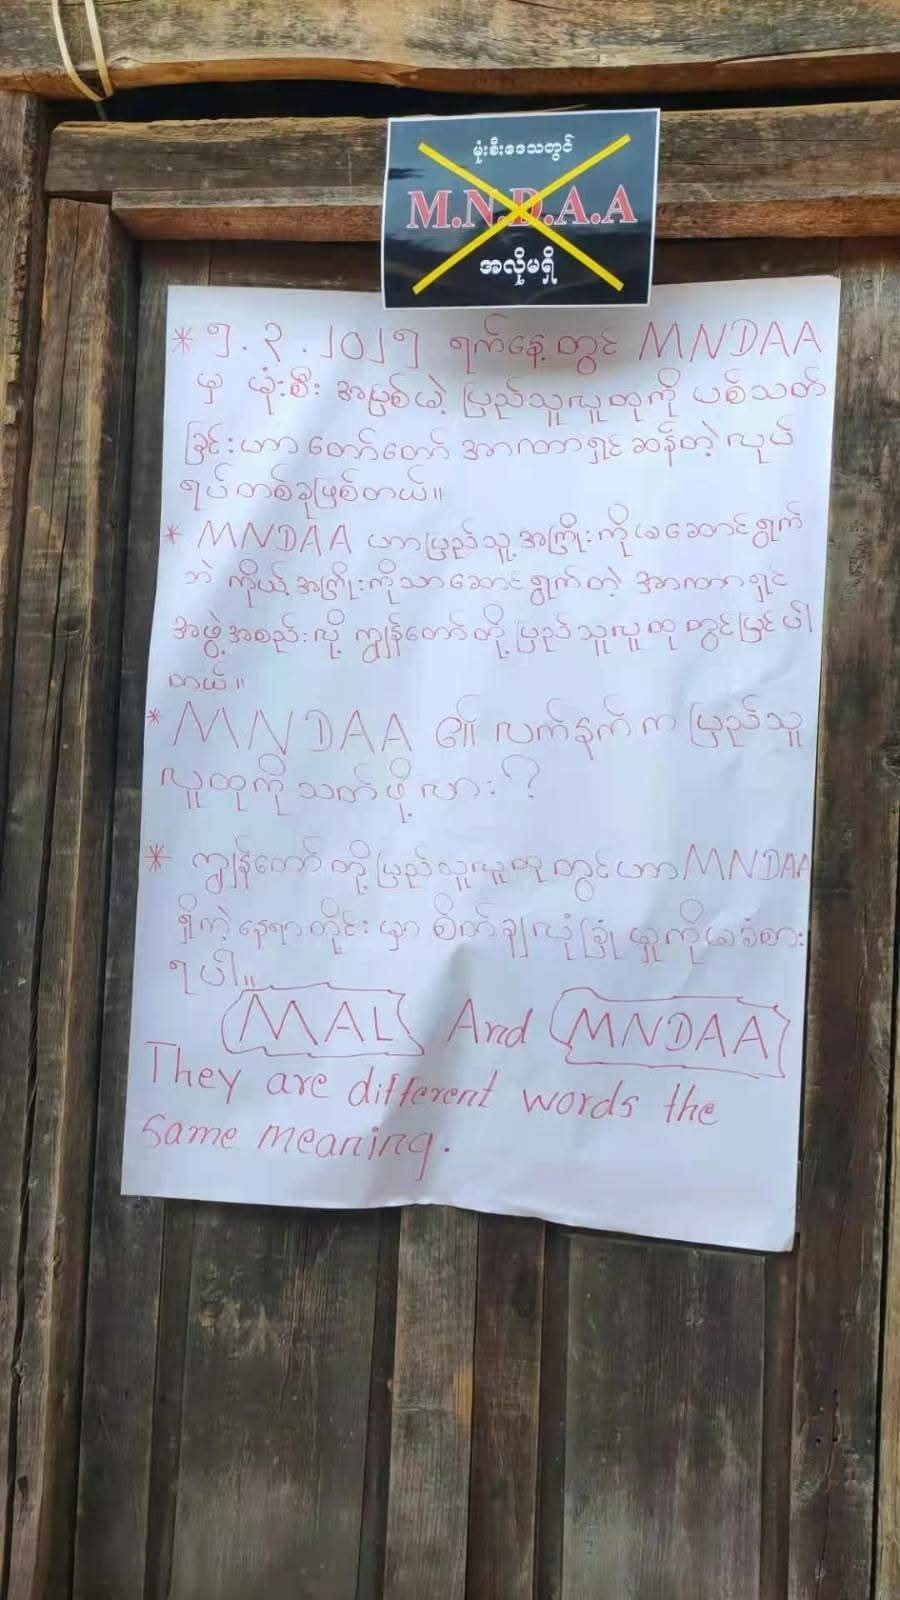 မုံးစီးဒေသတွင်
M.N.D.A.A
အလိုမရှိ
* ၅.၃.၂၀၂၅ ရက်နေ့တွင် MNDAA
မှ မုံးစီး အပြစ်မဲ့ ပြည်သူလူထုကို ပစ်သတ်
ခြင်းဟာ တော်တော် အာဏာရှင်ဆန်တဲ့ လုပ်
ရပ်တစ်ခုဖြစ်တယ်။
* MNDAA ဟာပြည်သူ့အကြိုးကိုမဆောင်ရွက်
ဘဲ ကိုယ့်အကြိုးကိုသာဆောင်ရွက်တဲ့ အာဏာရှင်
အဖွဲ့အစည်းလို့ ကျွန်တော်တို့ ပြည်သူလူထုတွင်မြင်ပါ
တယ်။
* MNDAA ၏ လက်နက်က ပြည်သူ
လူထုကို သတ်ဖို့လား?
* ကျွန်တော်တို့ပြည်သူလူထုတွင်ဟာ MNDAA
ရှိတဲ့နေရာတိုင်းမှာ စိတ်ချလုံခြုံမှုကိုမခံစား
ရပါ။
MAL And MNDAA
They are different words the
same meaning.